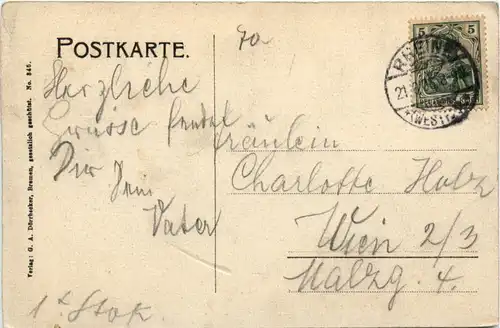 POSTKARTE.
Herzliche
Grüsse sendet
Dir Dein
Vater
1ter Stok
Fräulein
Charlotte Holz
Wien 2/3
Malzg. 4.
5 5
RHEINE
21.
(WESTF.)
Verlag: G. A. Dörbecker, Bremen, gesetzlich geschützt. No. 346.